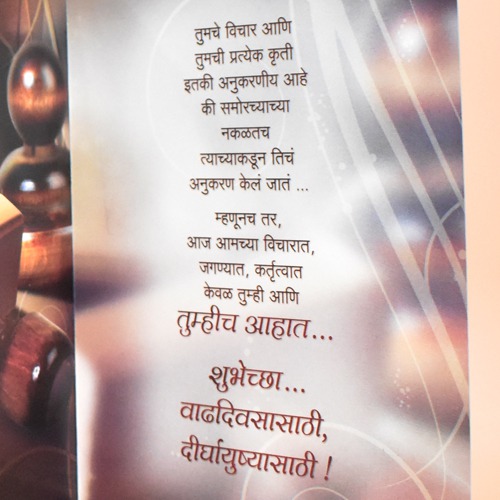 तुमचे विचार आणि
तुमची प्रत्येक कृती
इतकी अनुकरणीय आहे
की समोरच्याच्या
नकळतच
त्याच्याकडून तिचं
अनुकरण केलं जातं ...
म्हणूनच तर,
आज आमच्या विचारात,
जगण्यात, कर्तृत्वात
केवळ तुम्ही आणि
तुम्हीच आहात...
शुभेच्छा...
वाढदिवसासाठी,
दीर्घायुष्यासाठी !